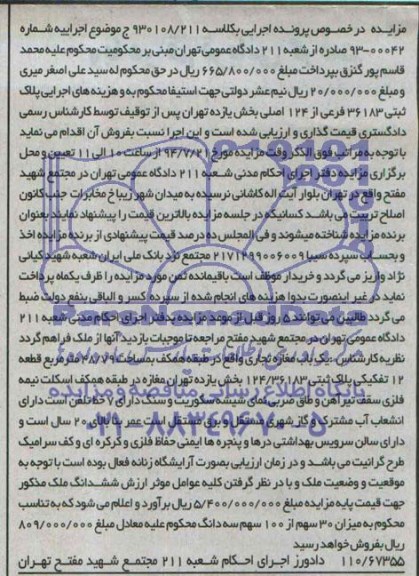 مزایـده در خصوص پرونده اجرایی بکلاسـه ۹۳۰۱۰۸/۲۱۱ ج موضوع اجراییه شـماره
۹۳-۰۰۰۴۲ صادره از شـعبه ۲۱۱ دادگاه عمومی تهران مبنی بر محکومیت محکوم علیه محمد
قاسم پور گنزق بپرداخت مبلغ ۶۶۵/۸۰۰/۰۰۰ ریال در حق محکوم له سید علی اصغر میری
و مبلغ ۲۰/۰۰۰/۰۰۰ ریال نیم عشر دولتی جهت استیفا محکوم به و هزینه های اجرایی پلاک
ثبتی ۳۶۱۸۳ فرعی از ۱۲۴ اصلی بخش یازده تهران پس از توقیف توسط کارشناس رسمی
دادگستری قیمت گذاری و ارزیابی شده است و این اجرا نسبت بفروش آن اقدام می نماید
با توجه به مراتب فوق الذکر وقت مزایده مورخ ۹۴/۷/۲۱ از ساعت ۱۰ الی ۱۱ تعیین و محل
برگزاری مزایده دفتر اجرای احکام مدنی شـعبه ۲۱۱ دادگاه عمومی تهران در مجتمع شهید
مفتح واقع در تهران بلوار آیت اله کاشانی نرسیده به میدان شهر زیبا خ مخابرات جنب کانون
اصلاح تربیت می باشـد کسانیکه در جلسه مزایده بالاترین قیمت را پیشنهاد نمایند بعنوان
برنده مزایده شناخته میشوند و فی المجلس ده درصد قیمت پیشنهادی از برنده مزایده اخذ
و بحسـاب سپرده سیبا ۲۱۷۱۲۹۹۰۰۶۰۰۹ مجتمع نزد بانک ملی ایران شعبه شهید کیانی
نژاد واریز می گردد و خریدار موظف است باقیمانده ثمن مورد مزایده را ظرف یکماه پرداخت
نماید در غیر اینصورت بدوا هزینه های انجام شده از سپرده کسر و الباقی بنفع دولت ضبط
می گردد طالبین می توانند ۵ روز قبل از موعد مزایده بدفتر اجرای احکام مدنی شعبه ۲۱۱
دادگاه عمومی تهران در مجتمع شهید مفتح مراجعه تا موجبات بازدید آنها از ملک فراهم گردد
نظریه کارشناس: یک باب مغازه تجاری واقع در طبقه همکف بمساحت ۲۸/۷۹ مترمربع قطعه
۱۲ تفکیکی پلاک ثبتی ۱۲۴/۳۶۱۸۳ بخش یازده تهران مغازه در طبقه همکف اسکلت نیمه
فلزی سقف تیرآهن و طاق ضربی نمای شیشه سکوریت و سنگ دارای ۷ خط تلفن است دارای
انشعاب آب مشترک و گاز شهری مستقل و برق مستقل است عمر بنا بالای ۲۰ سال است و
دارای سالن سرویس بهداشتی درها و پنجره ها ایمنی حفاظ فلزی و کرکره ای و کف سرامیک
طرح گرانیت می باشـد و در زمان ارزیابی بصورت آرایشگاه زنانه فعال بوده است با توجه به
موقعیت و وضعیت ملک و با در نظر گرفتن کلیه عوامل موثر ارزش ششـدانگ ملک مذکور
جهت قیمت پایه مزایده مبلغ ۵/۴۰۰/۰۰۰/۰۰۰ ریال برآورد و اعلام می شود که به تناسب
محکوم به میزان ۳۰ سهم از ۱۰۰ سهم سه دانگ محکوم علیه معادل مبلغ ۸۰۹/۰۰۰/۰۰۰
ریال بفروش خواهد رسید
۱۱۰/۶۷۳۵۵ دادورز اجـرای احـکام شـعبه ۲۱۱ مجتمـع شـهید مفتـح تهـران
۰۲۱-۸۸۳۴۹۶۷۰-۵